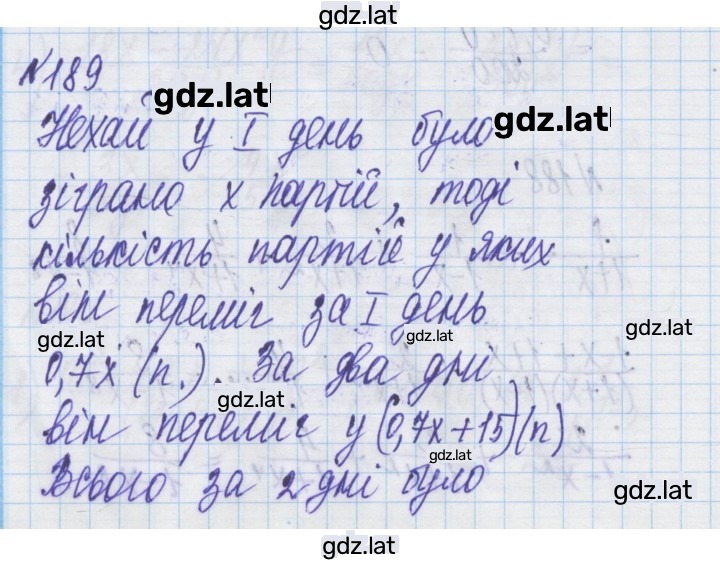 gdz.lat
№189
gdz.lat
Нехай у I день було
gdz.lat
зіграно x партій, тоді
кількість партій у яких
він переміг за I день
gdz.lat gdz.lat gdz.lat
0,7x (п.). За два дні
gdz.lat
він переміг у (0,7x+15)(п)
gdz.lat
Всього за 2 дні було
gdz.lat
gdz.lat